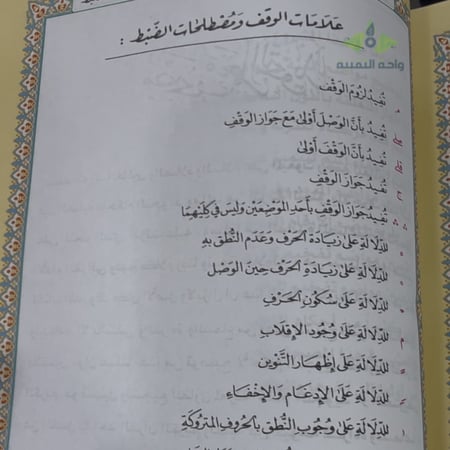 عَلَامَات الوَقْف وَمُصْطَلَحَات الضَّبْط :
واحة اليمنيه
م تُفِيدُ لُزُومَ الوَقْف
صلى تُفِيدُ بأَنَّ الوَصْلَ أَوْلَىٰ مَعَ جَوَازِ الوَقْفِ
قلى تُفِيدُ بأَنَّ الوَقْفَ أَوْلَىٰ
ج تُفِيدُ جَوَازَ الوَقْفِ
تُفِيدُ جَوَازَ الوَقْفِ بأَحَدِ المَوْضِعَيْنِ وَلَيْسَ فِي كِلَيْهِمَا
لِلدِّلَالَةِ عَلَىٰ زِيَادَةِ الحَرْفِ وَعَدَمِ النُّطْقِ بِهِ
لِلدِّلَالَةِ عَلَىٰ زِيَادَةِ الحَرْفِ حِينَ الوَصْل
لِلدِّلَالَةِ عَلَىٰ سُكُونِ الحَرْفِ
م لِلدِّلَالَةِ عَلَىٰ وُجُودِ الإِقْلَابِ
لِلدِّلَالَةِ عَلَىٰ إِظْهَارِ التَّنْوِينِ
لِلدِّلَالَةِ عَلَىٰ الإِدْغَامِ وَالإِخْفَاءِ
لِلدِّلَالَةِ عَلَىٰ وُجُوبِ النُّطْقِ بِالحُرُوفِ المَتْرُوكَةِ